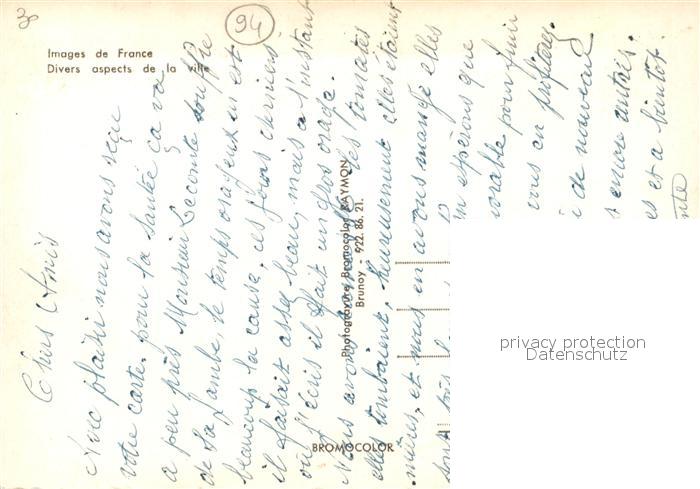 30
94
Images de France
Divers aspects de la ville
Chers Amis
Avec plaisir nous avons reçu
votre carte. pour la santé ça va
a peu près Monsieur Lecomte souffre
de sa jambe, le temps orageux en est
beaucoup la cause, ces jours derniers
il faisait assez beau, mais a l'instant
où j'écris il fait un gros orage.
Nous avons les tomates
elles tombaient, heureusement elles étaient
mûres, et nous en avons mangé elles
sont très
en espérons que
orable pour Juin
vous en profitiez
de nouveau
encore autres.
es et a bientôt.
Photogravure Bromocolor RAYMON
Brunoy - 922. 86. 21.
BROMOCOLOR
privacy protection
Datenschutz